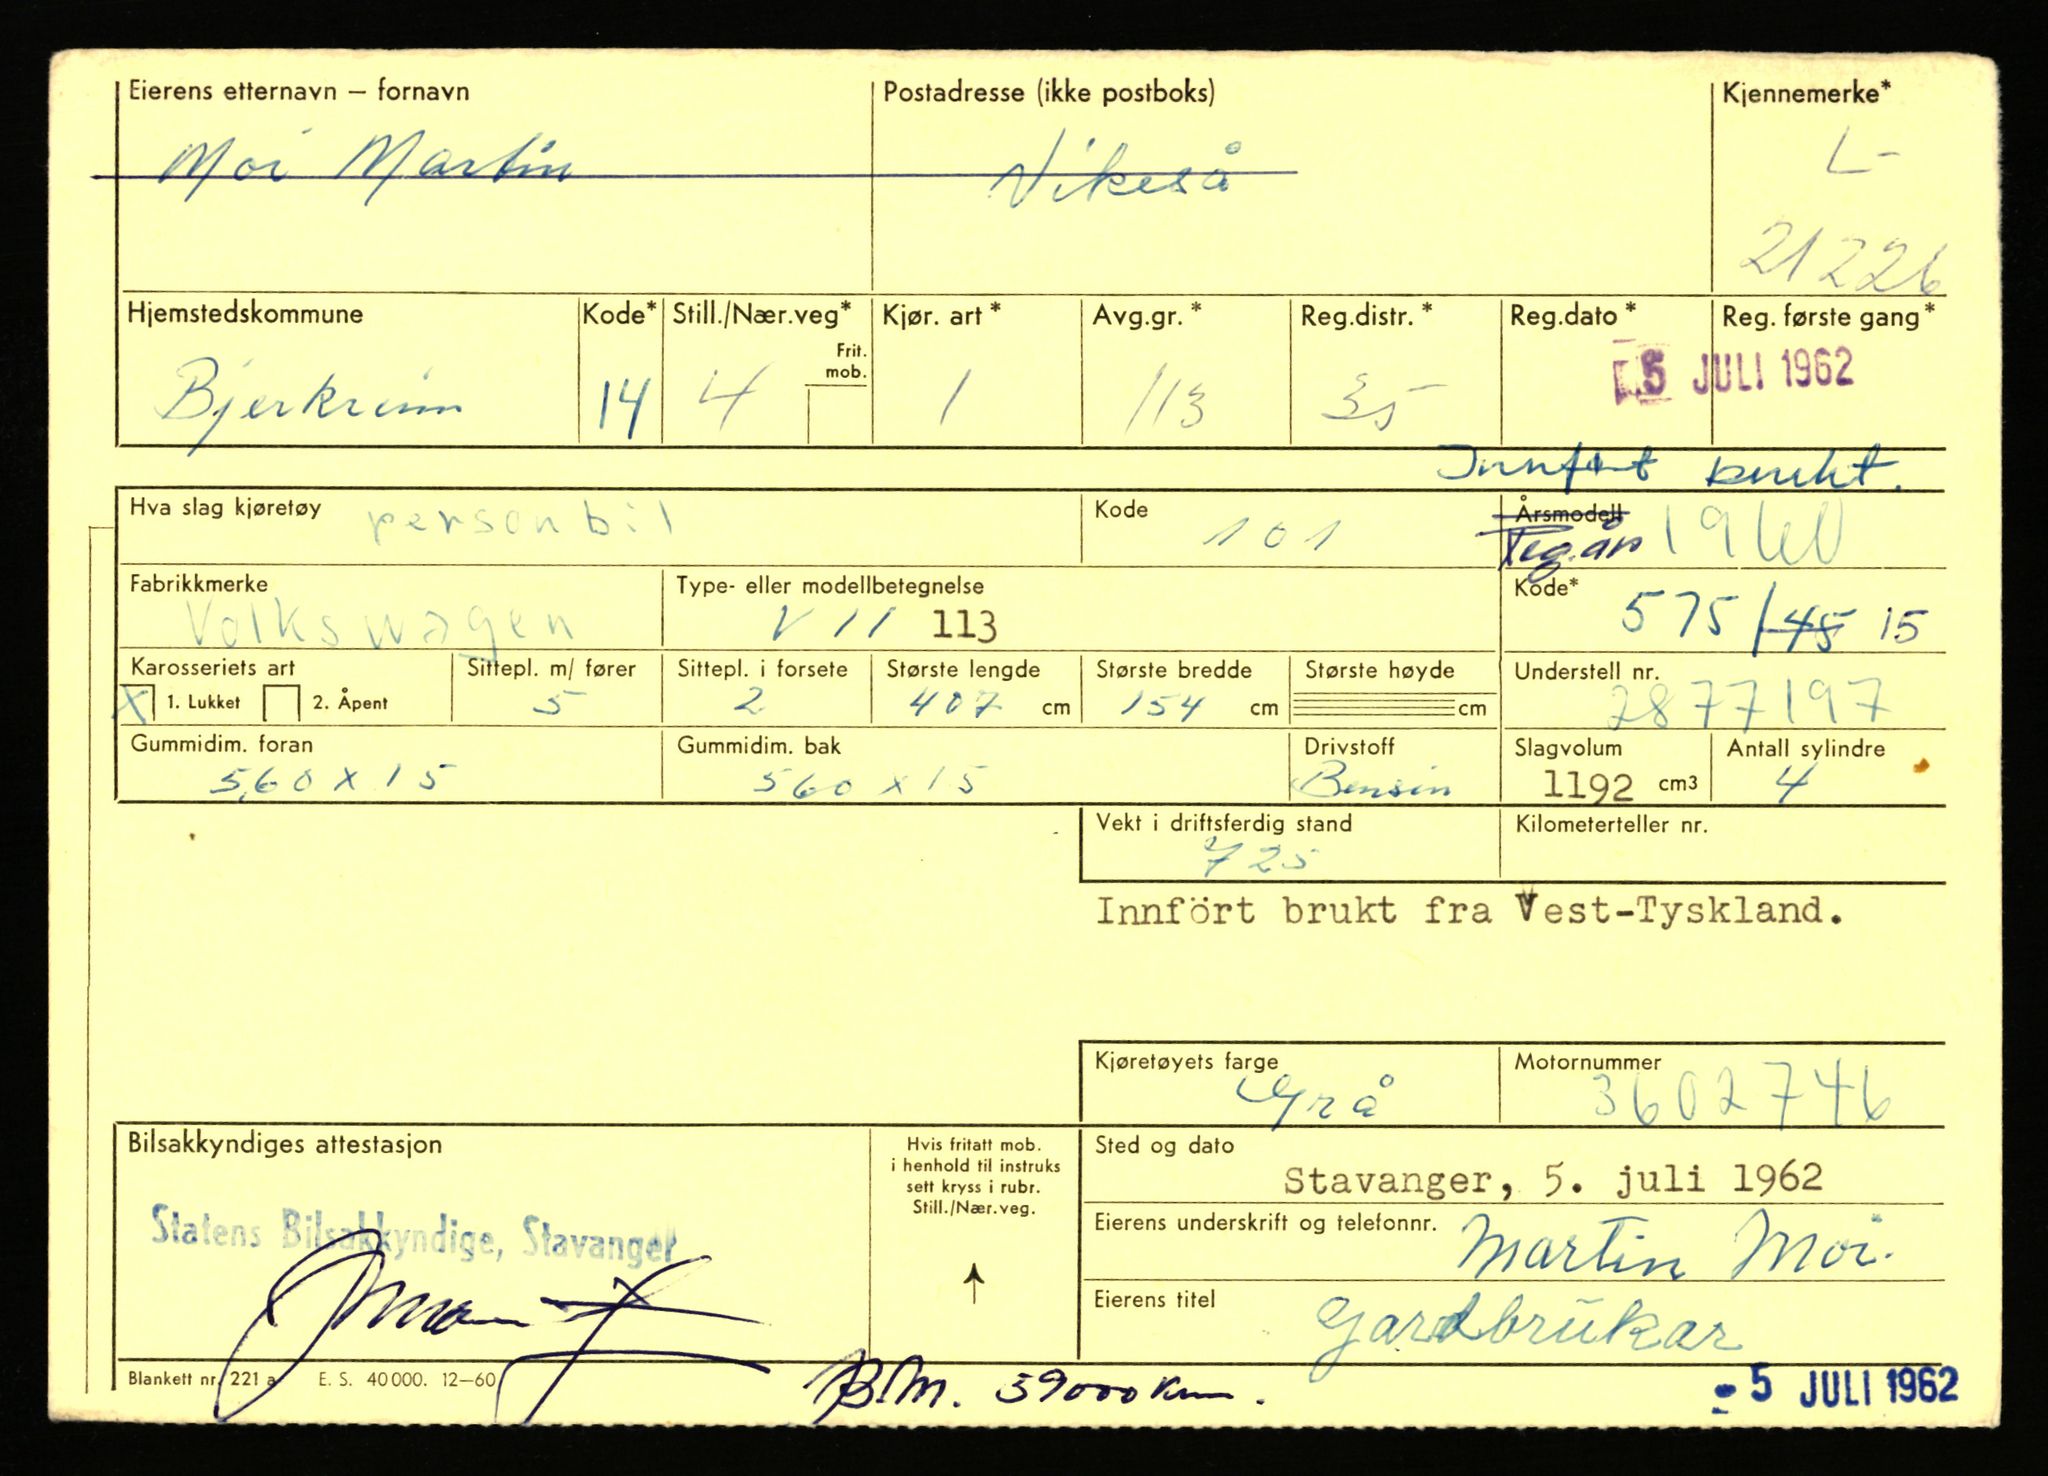 Eierens etternavn – fornavn Postadresse (ikke postboks) Kjennemerke*
Moi Martin Vikeså L-
21226
Hjemstedskommune Kode* Still./Nær.veg* Kjør. art * Avg.gr. * Reg.distr. * Reg.dato * Reg. første gang*
Frit.
mob.
Bjerkreim 14 4 1 113 35 5 JULI 1962
Innført brukt.
Hva slag kjøretøy personbil Kode 101 Årsmodell 1960
Fabrikkmerke Type- eller modellbetegnelse Kode*
Volkswagen V 11 113 575/45 15
Karosseriets art Sittepl. m/ fører Sittepl. i forsete Største lengde Største bredde Største høyde Understell nr.
X 1. Lukket 2. Åpent 5 2 407 cm 154 cm cm 2877197
Gummidim. foran Gummidim. bak Drivstoff Slagvolum Antall sylindre
5,60 x 15 560 x 15 Bensin 1192 cm3 4
Vekt i driftsferdig stand Kilometerteller nr.
725
Innfört brukt fra Vest-Tyskland.
Kjøretøyets farge Motornummer
Grå 3602746
Bilsakkyndiges attestasjon Hvis fritatt mob. Sted og dato
i henhold til instruks
sett kryss i rubr.
Still./Nær.veg.
Stavanger, 5. juli 1962
Statens Bilsakkyndige, Stavanger
Eierens underskrift og telefonnr. Martin Moi.
Eierens titel Gardbrukar
Blankett nr. 221 a E. S. 40000. 12–60
B.M. 59000 km.
- 5 JULI 1962